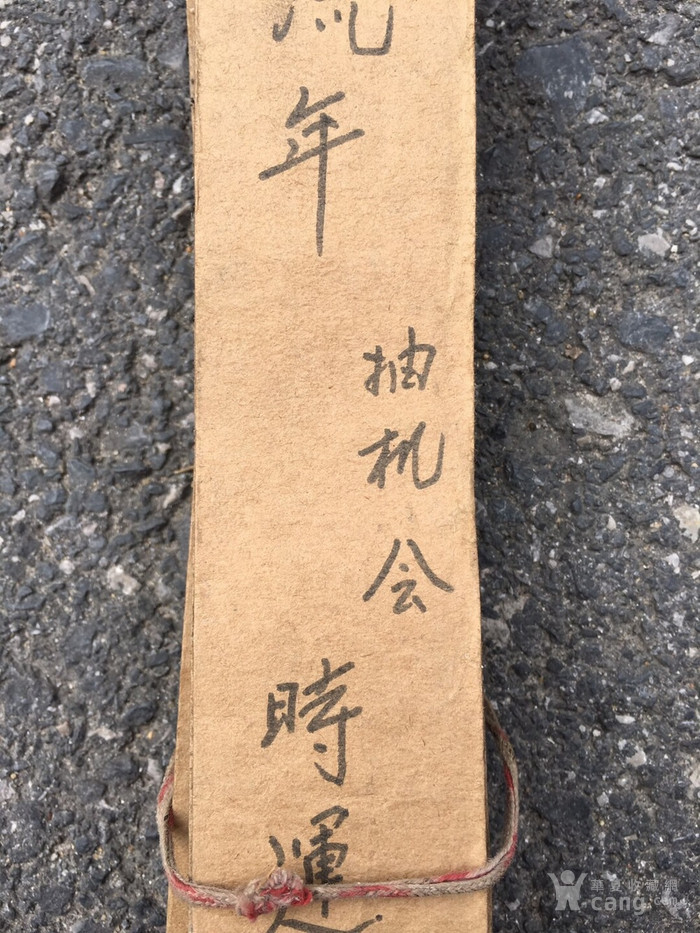 流年
抽机会
時運
華夏收藏網
X-cang.com